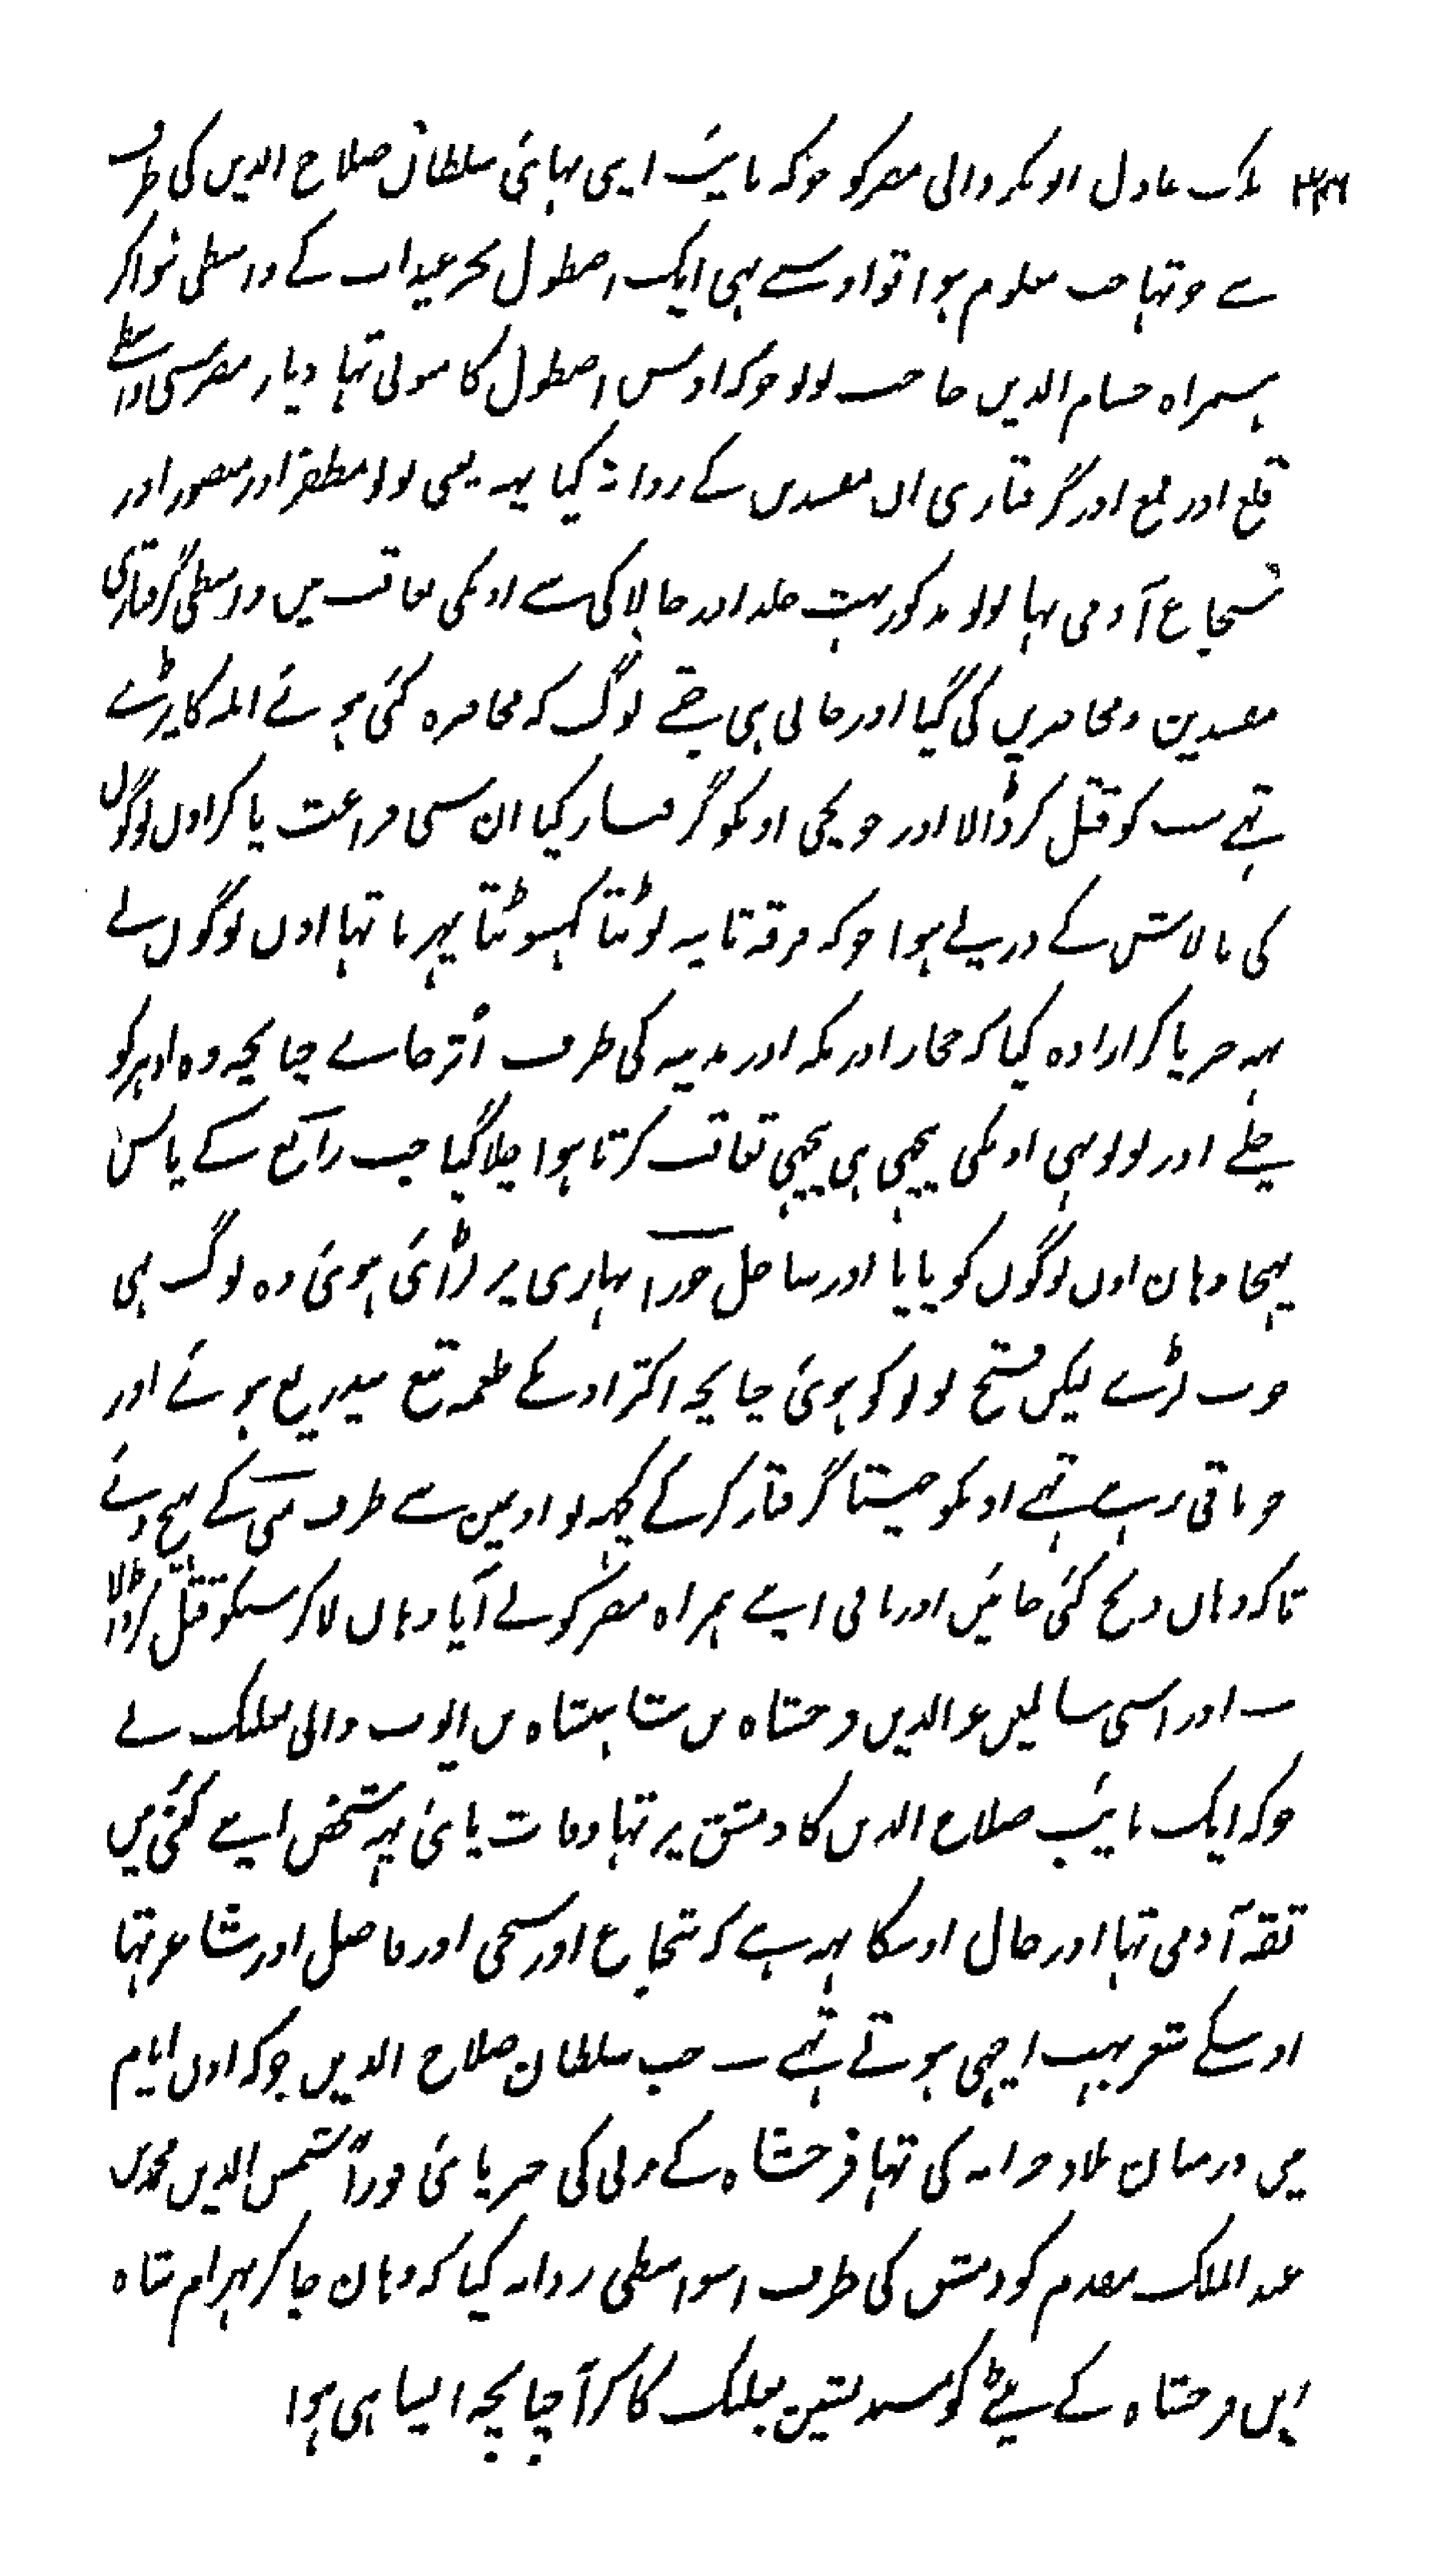 ۳۲۶ ملک عادل ابوبکر والی مصر کو جوکہ نایٔب اپنی بہایٔی سلطان صلاح الدین کی طرف
سے تہا جب معلوم ہوا تو اوسنے بہی ایک اصطول بحر عیذاب کے واسطی بنواکر
ہمراہ حسام الدین حاجب لولو جوکہ اوس اصطول کا متولی تہا دیار مصر سی واسطے
قلع اور قمع اور گرفتاری ان مفسدین کے روانہ کیا یہہ یعنی لولو مظفر اور منصور اور
شجاع آدمی تہا لولو مذکور بہت جلد اور چالاکی سے اونکی تعاقب میں واسطی گرفتاری
مفسدین و محاصرین کی گیا اور جاتی ہی جتنے لوگ کہ محاصرہ کئی ہوئے ایلہ کا پڑے
تہے سب کو قتل کر ڈالا اور جو بچی اونکو گرفتار کیا ان سی فراغت پاکر اون لوگوں
کی تلاش کے درپے ہوا جوکہ فرقہ ثانیہ لوٹتا کہسوٹتا پہرتا تہا اون لوگوں نے
یہہ خبر پاکر ارادہ کیا کہ حجاز اور مکہ اور مدینہ کی طرف اُتر جاے چنانچہ وہ اودہر کو
چلے اور لولو بہی اونکی پیچہی ہی پیچہی تعاقب کرتا ہوا چلا گیا جب رابغ کے پاس
پہنچا وہان اون لوگوں کو پایا اور ساحل حورا پر بہاری لڑائی ہوئی وہ لوگ بہی
خوب لڑے لیکن فتح لولو کو ہوئی چنانچہ اکثر اونکے طعمہ تیغ بیدریغ ہوئے اور
جو باقی رہے تہے اونکو جیتا گرفتار کرکے کچہہ تو اونمین سے طرف منی کے بہیج دئے
تاکہ وہاں ذبح کئی جائیں اور باقی اپنے ہمراہ مصر کو لے آیا وہاں لاکر سبکو قتل کرڈالا
ــ اور اسی سال میں عزالدین فرخشاہ بن شاہنشاہ بن ایوب والی بعلبک نے
جوکہ ایک نایٔب صلاح الدین کا دمشق پر تہا وفات پائی یہہ شخص اپنے کنبی میں
ثقہ آدمی تہا اور حال اوسکا یہہ ہے کہ شجاع اور سخی اور فاضل اور شاعر تہا
اوسکے شعر بہت اچہی ہوتے تہے ــ جب سلطان صلاح الدین جوکہ اون ایام
میں درمیان بلاد جزیرہ کی تہا فرخشاہ کے مرنی کی خبر پائی فوراً شمس الدین محمد بن
عبد الملک مقدم کو دمشق کی طرف اسواسطی روانہ کیا کہ وہان جاکر بہرام شاہ
ابن فرخشاہ کے بیٹے کو مسند نشین بعلبک کا کر آ چنانچہ ایسا ہی ہوا